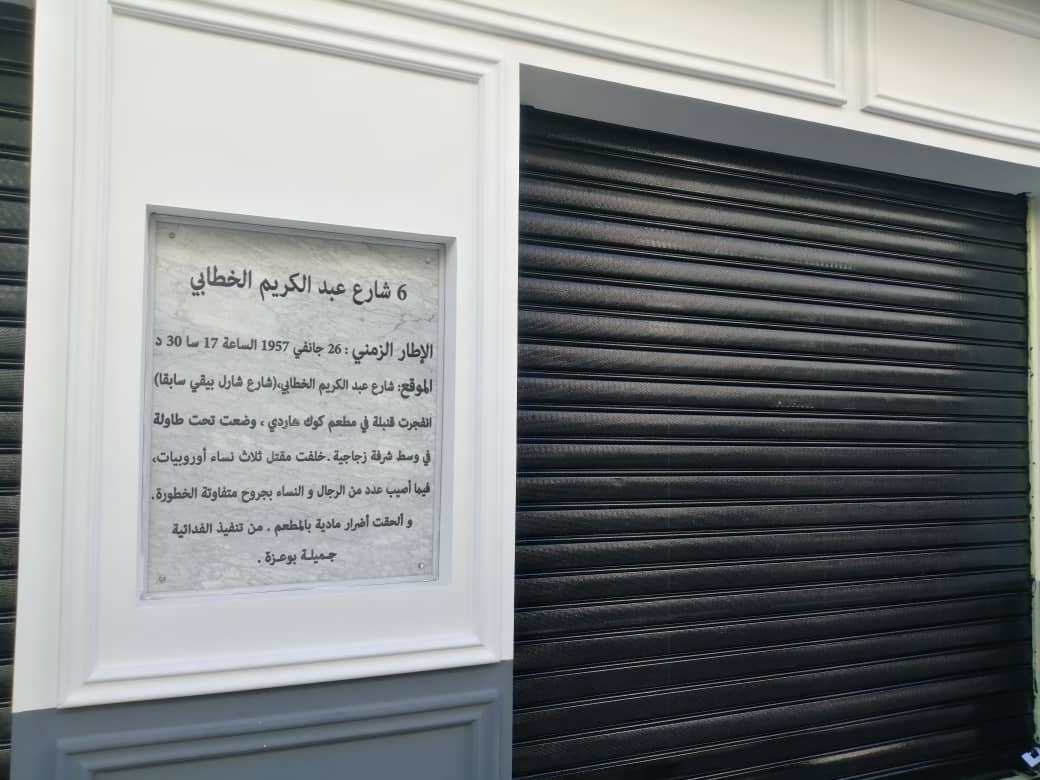 6 شارع عبد الكريم الخطابي
الإطار الزمني : 26 جانفي 1957 الساعة 17 سا 30 د
الموقع: شارع عبد الكريم الخطابي،(شارع شارل بيقي سابقا)
انفجرت قنبلة في مطعم كوك هاردي ، وضعت تحت طاولة
في وسط شرفة زجاجية .خلفت مقتل ثلاث نساء أوروبيات،
فيما أصيب عدد من الرجال و النساء بجروح متفاوتة الخطورة.
و ألحقت أضرار مادية بالمطعم . من تنفيذ الفدائية
جميلة بوعزة .